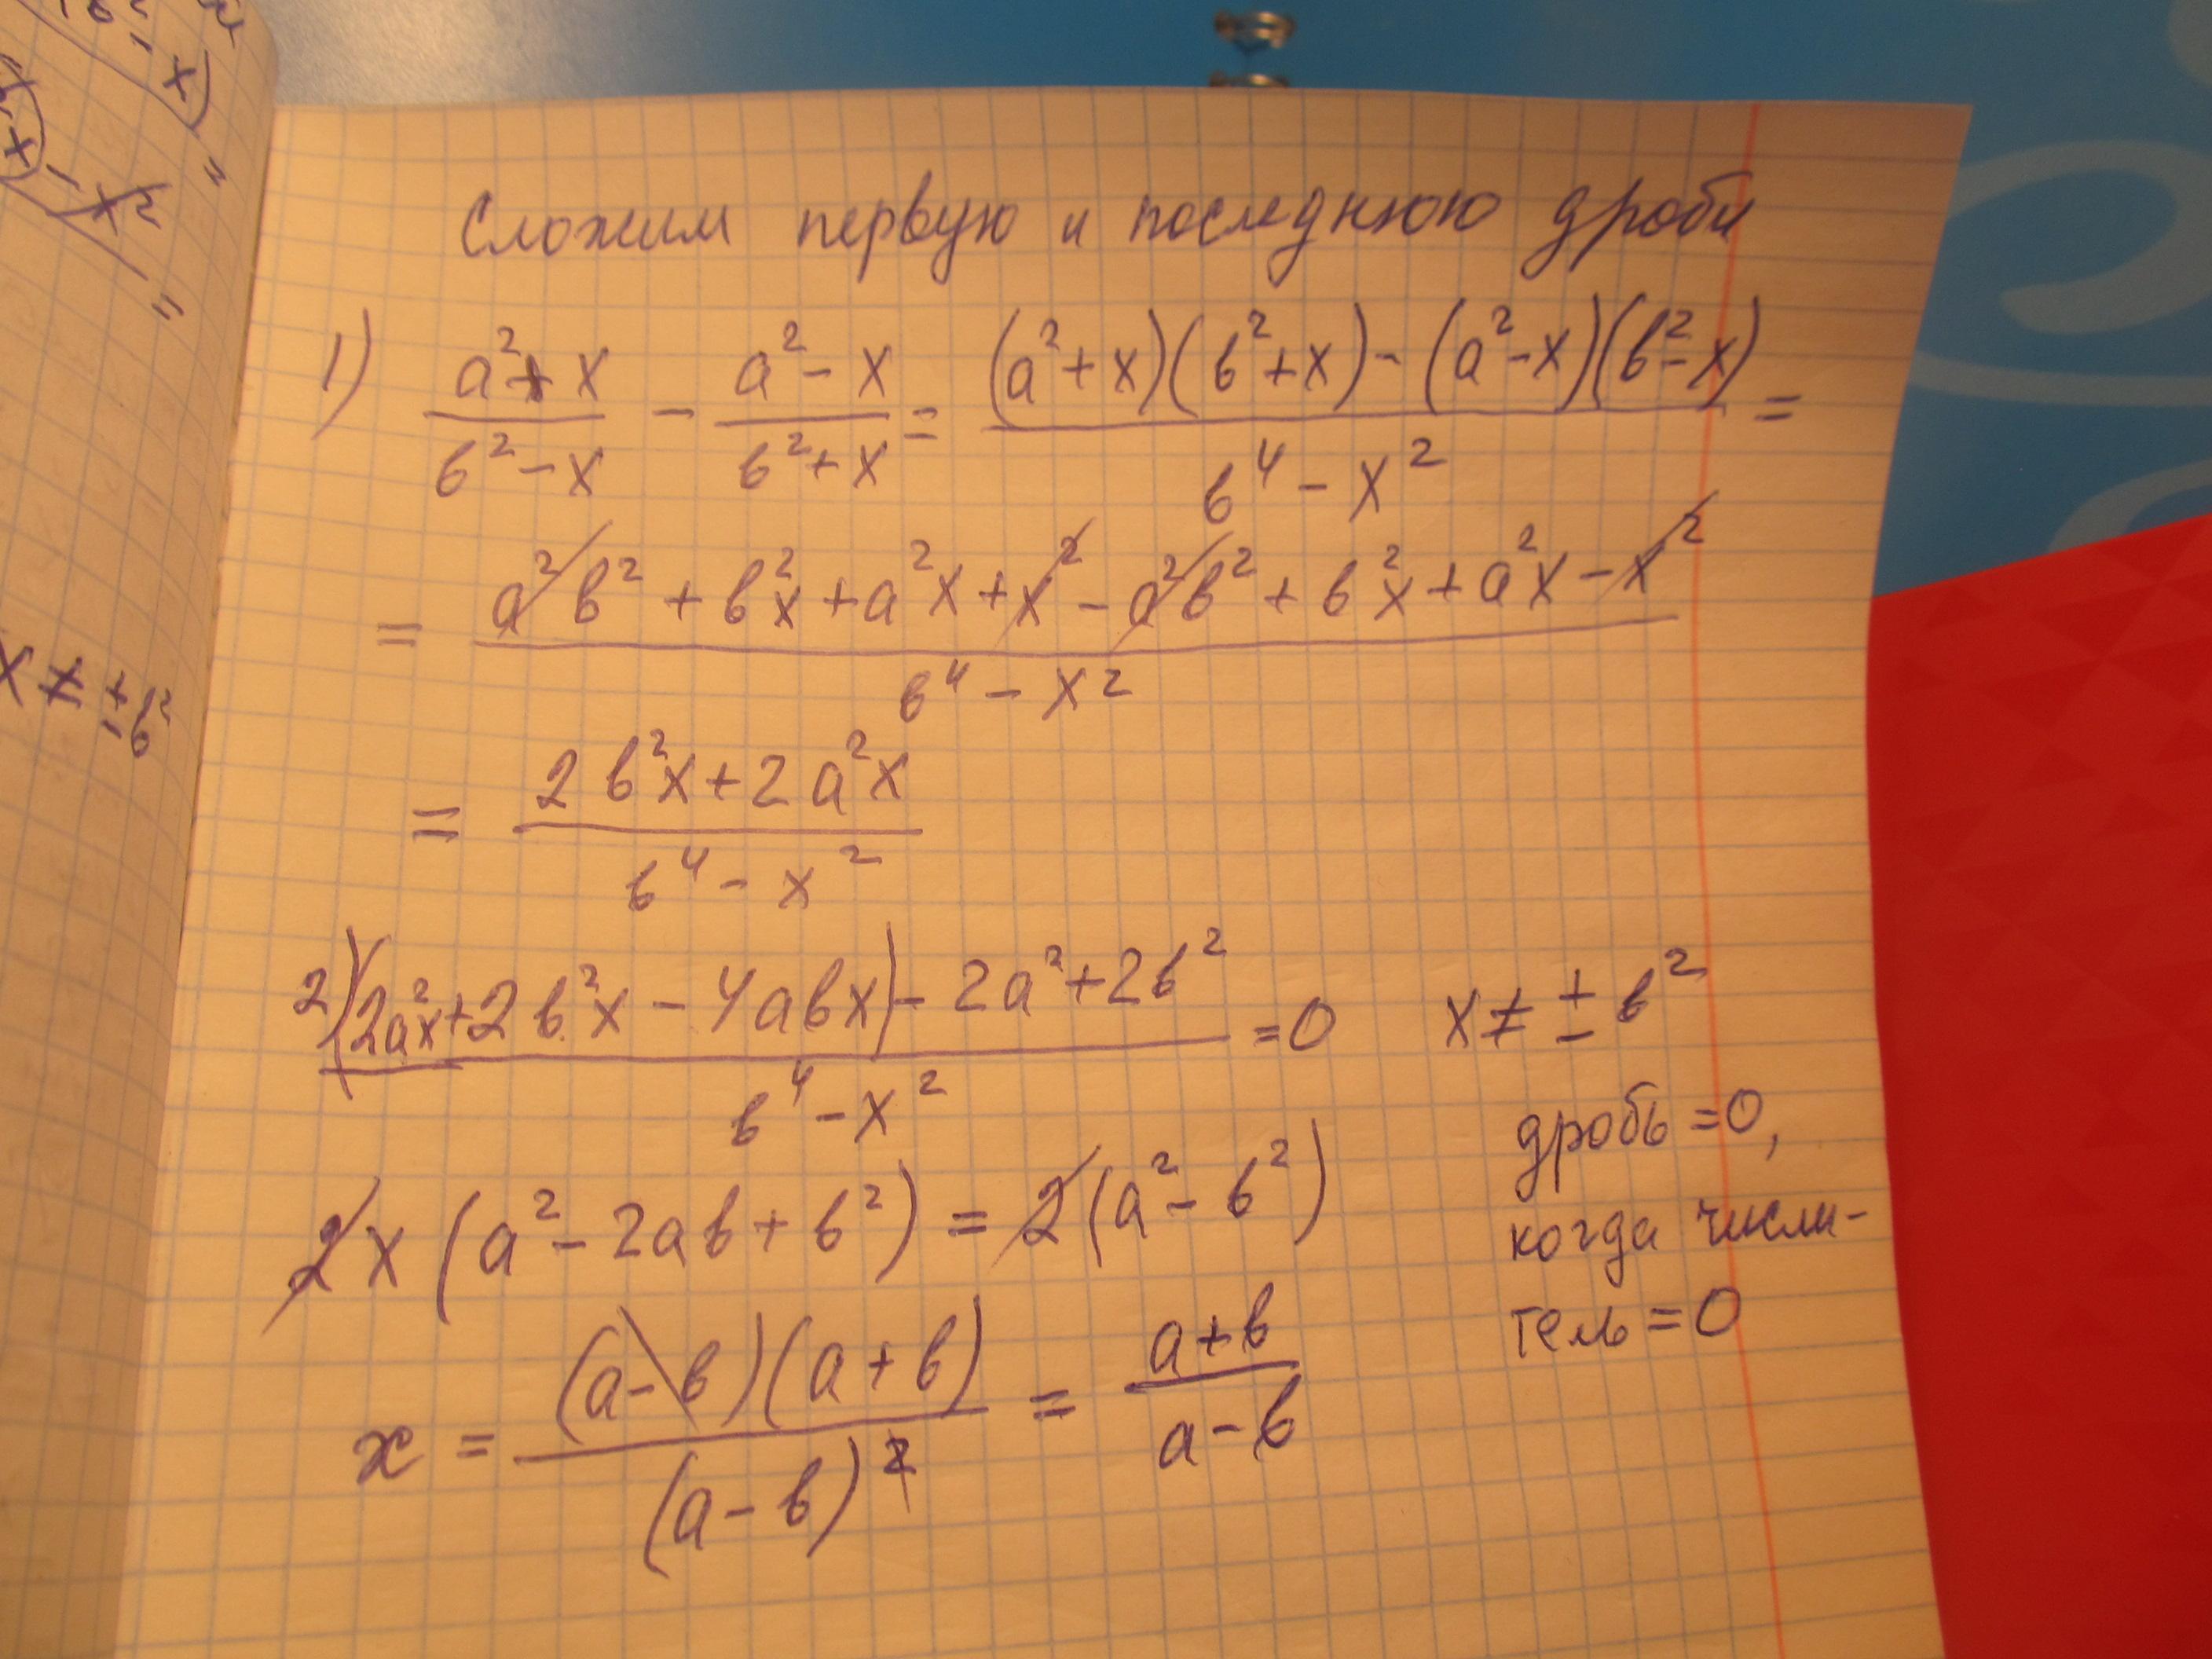 Сложим первую и последнюю дроби
1) (a² + x)/(b² - x) - (a² - x)/(b² + x) = ((a² + x)(b² + x) - (a² - x)(b² - x))/(b⁴ - x²) =
= (a²b² + b²x + a²x + x² - a²b² + b²x + a²x - x²)/(b⁴ - x²)
= (2b²x + 2a²x)/(b⁴ - x²)
2) ((2a²x + 2b²x - 4abx) - 2a² + 2b²)/(b⁴ - x²) = 0 x ≠ ± b²
дробь = 0,
когда числи-
тель = 0
2x (a² - 2ab + b²) = 2 (a² - b²)
x = ((a - b)(a + b))/(a - b)² = (a + b)/(a - b)
x ≠ ± b²